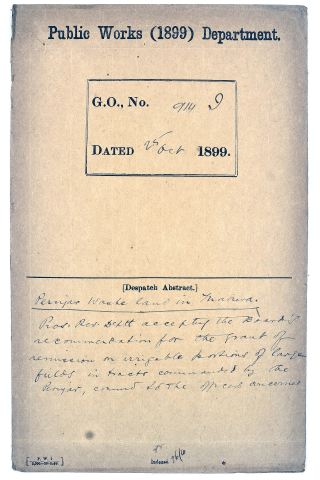 Public Works (1899) Department.
G.O., No. 914 I
DATED 25 Oct 1899.
[Despatch Abstract.]
Periyar Waste land in Madura.
Pros. Rev. Deptt accepting the Board's
recommendation for the grant of
remission on irrigable portions of large
fields in tracts commanded by the
Periyar, commd to the officers concerned